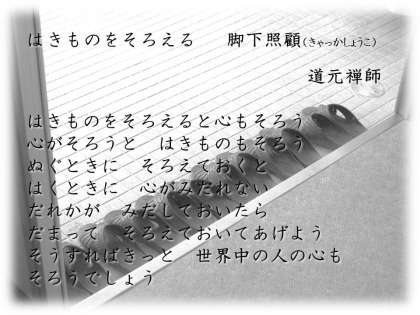 はきものをそろえる　脚下照顧（きゃっかしょうこ）
道元禅師
はきものをそろえると心もそろう
心がそろうと　はきものもそろう
ぬぐときに　そろえておくと
はくときに　心がみだれない
だれかが　みだしておいたら
だまって　そろえておいてあげよう
そうすればきっと　世界中の人の心も
そろうでしょう